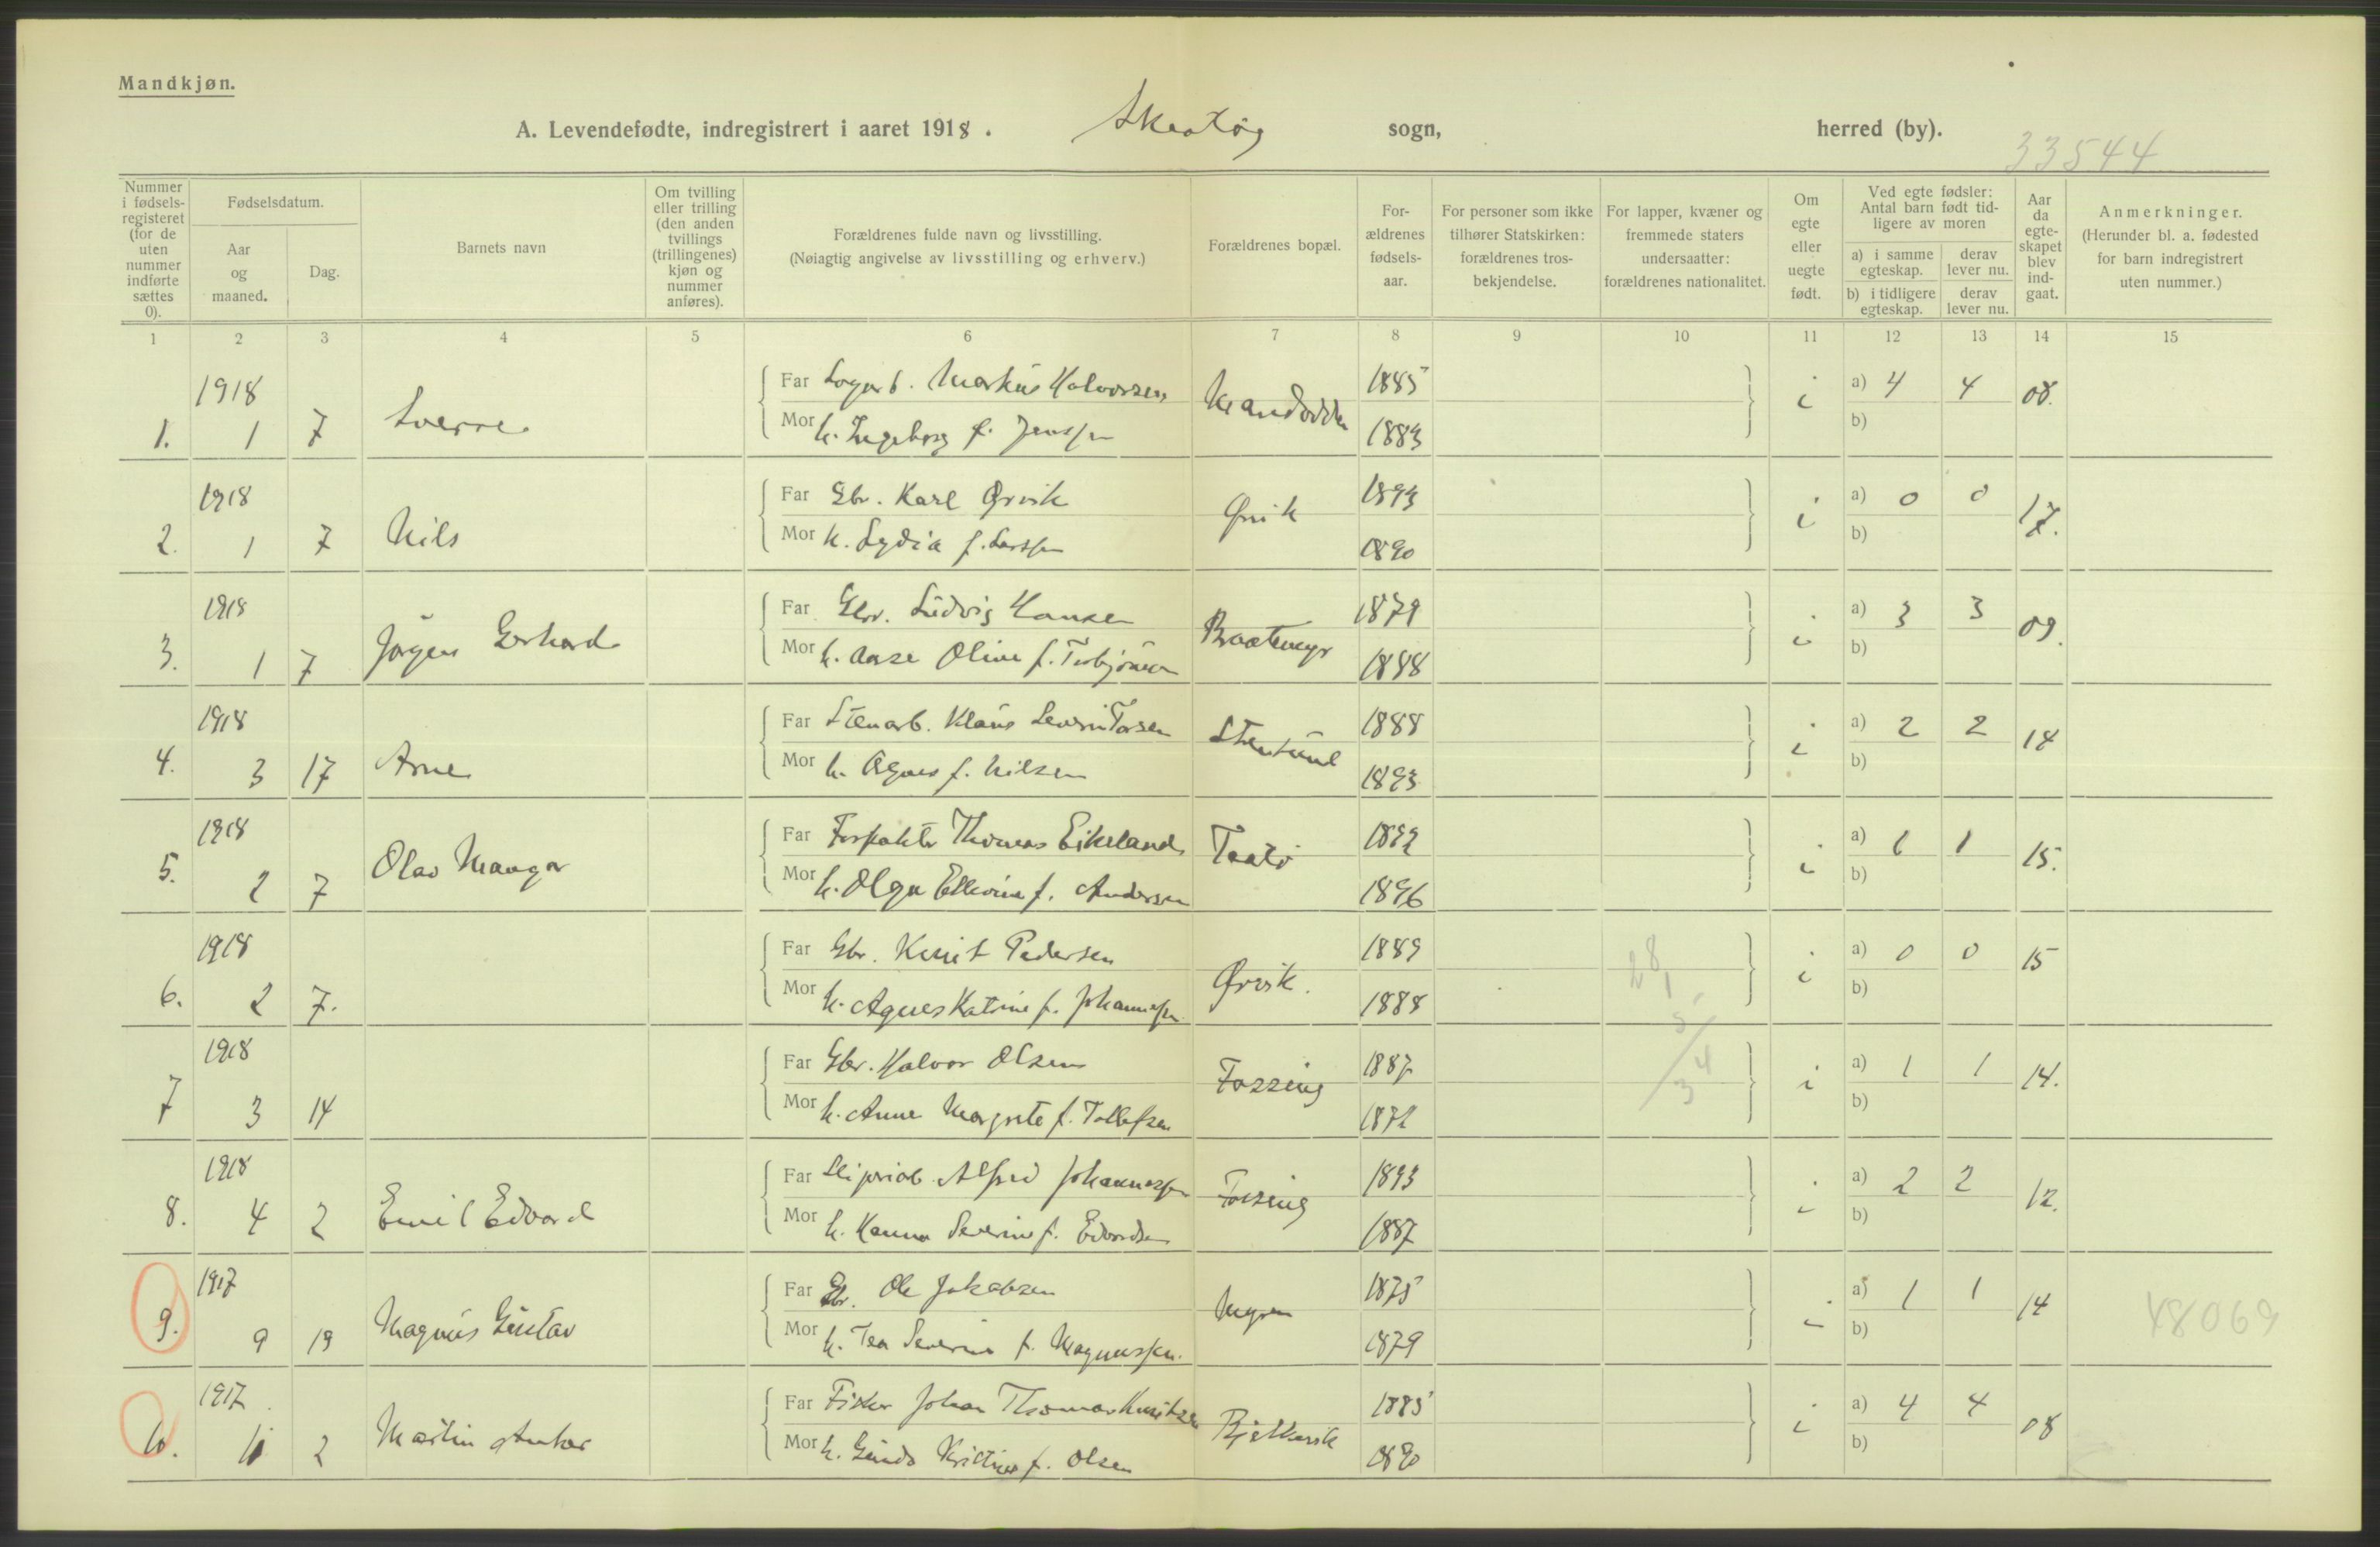 Mandkjøn.
A. Levendefødte, indregistrert i aaret 1918. Skåtøy sogn, herred (by).
33544
Nummer i fødsels-registeret (for de uten nummer indførte sættes 0).
Fødselsdatum.
Aar og maaned.
Dag.
Barnets navn
Om tvilling eller trilling (den anden tvillings (trillingenes) kjøn og nummer anføres).
Forældrenes fulde navn og livsstilling.
(Nøiagtig angivelse av livsstilling og erhverv.)
Forældrenes bopæl.
For-ældrenes fødsels-aar.
For personer som ikke tilhører Statskirken: forældrenes tros-bekjendelse.
For lapper, kvæner og fremmede staters undersaatter: forældrenes nationalitet.
Om egte eller uegte født.
Ved egte fødsler: Antal barn født tid-ligere av moren
a) i samme egteskap.
derav lever nu.
b) i tidligere egteskap.
derav lever nu.
Aar da egte-skapet blev ind-gaat.
Anmerkninger.
(Herunder bl. a. fødested for barn indregistrert uten nummer.)
1 2 3 4 5 6 7 8 9 10 11 12 13 14 15
1918 Far Markus Halvorsen 1885 a) 4 4 08.
1. 1 7 Sverre Mor h. Ingeborg f. Jenssen 1883 i b)
1918 Far Gbr. Karl Ørvik Ørvik 1893 a) 0 0 17.
2. 1 7 Nils Mor h. Lydia f. Larssen 1890 i b)
1918 Far Gbr. Ludvig Hansen 1879 a) 3 3 09.
3. 1 7 Jørgen Gerhard Mor h. Aase Oline f. Torbjørnsen Braatemyr 1888 i b)
1918 Far Stenarb. Klaus Severin Torsen 1888 a) 2 2 14
4. 3 17 Arne Mor h. Agnes f. Nilsen Stensund 1893 i b)
1918 Far Forpakter Thomas Eikeland Taatø a) 1 1 15.
5. 2 7 Olav Mangor Mor h. Olga f. Andersen 1896 i b)
1918 Far Gbr. Knut Pedersen 1889 a) 0 0 15
6. 2 7. Mor h. Agnes Katrine f. Johannessen Ørvik. 1888 i b)
28
1918 Far Gbr. Halvor Olsen Fossing 1887 a) 1 1 14.
7 3 14 Mor h. Anne Margrete f. Tollefsen i b)
1918 Far Alfred Johannessen Fossing 1893 a) 2 2 12.
8. 4 2 Emil Edvard Mor h. Hanna Severine f. Edvardsen 1887 i b)
1917 Far Gbr. Ole Jakobsen 1875 a) 1 1 14
9. 9 19 Magnus Gustav Mor h. Tea Severine f. Magnussen. Myren 1879 i b) 48069
1917 Far Fisker Johan Thomas Knutsen 1885 a) 4 4 08
10. 11 2 Martin Anker Mor h. Gunda Kristine f. Olsen Bjelkevik 1890 i b)